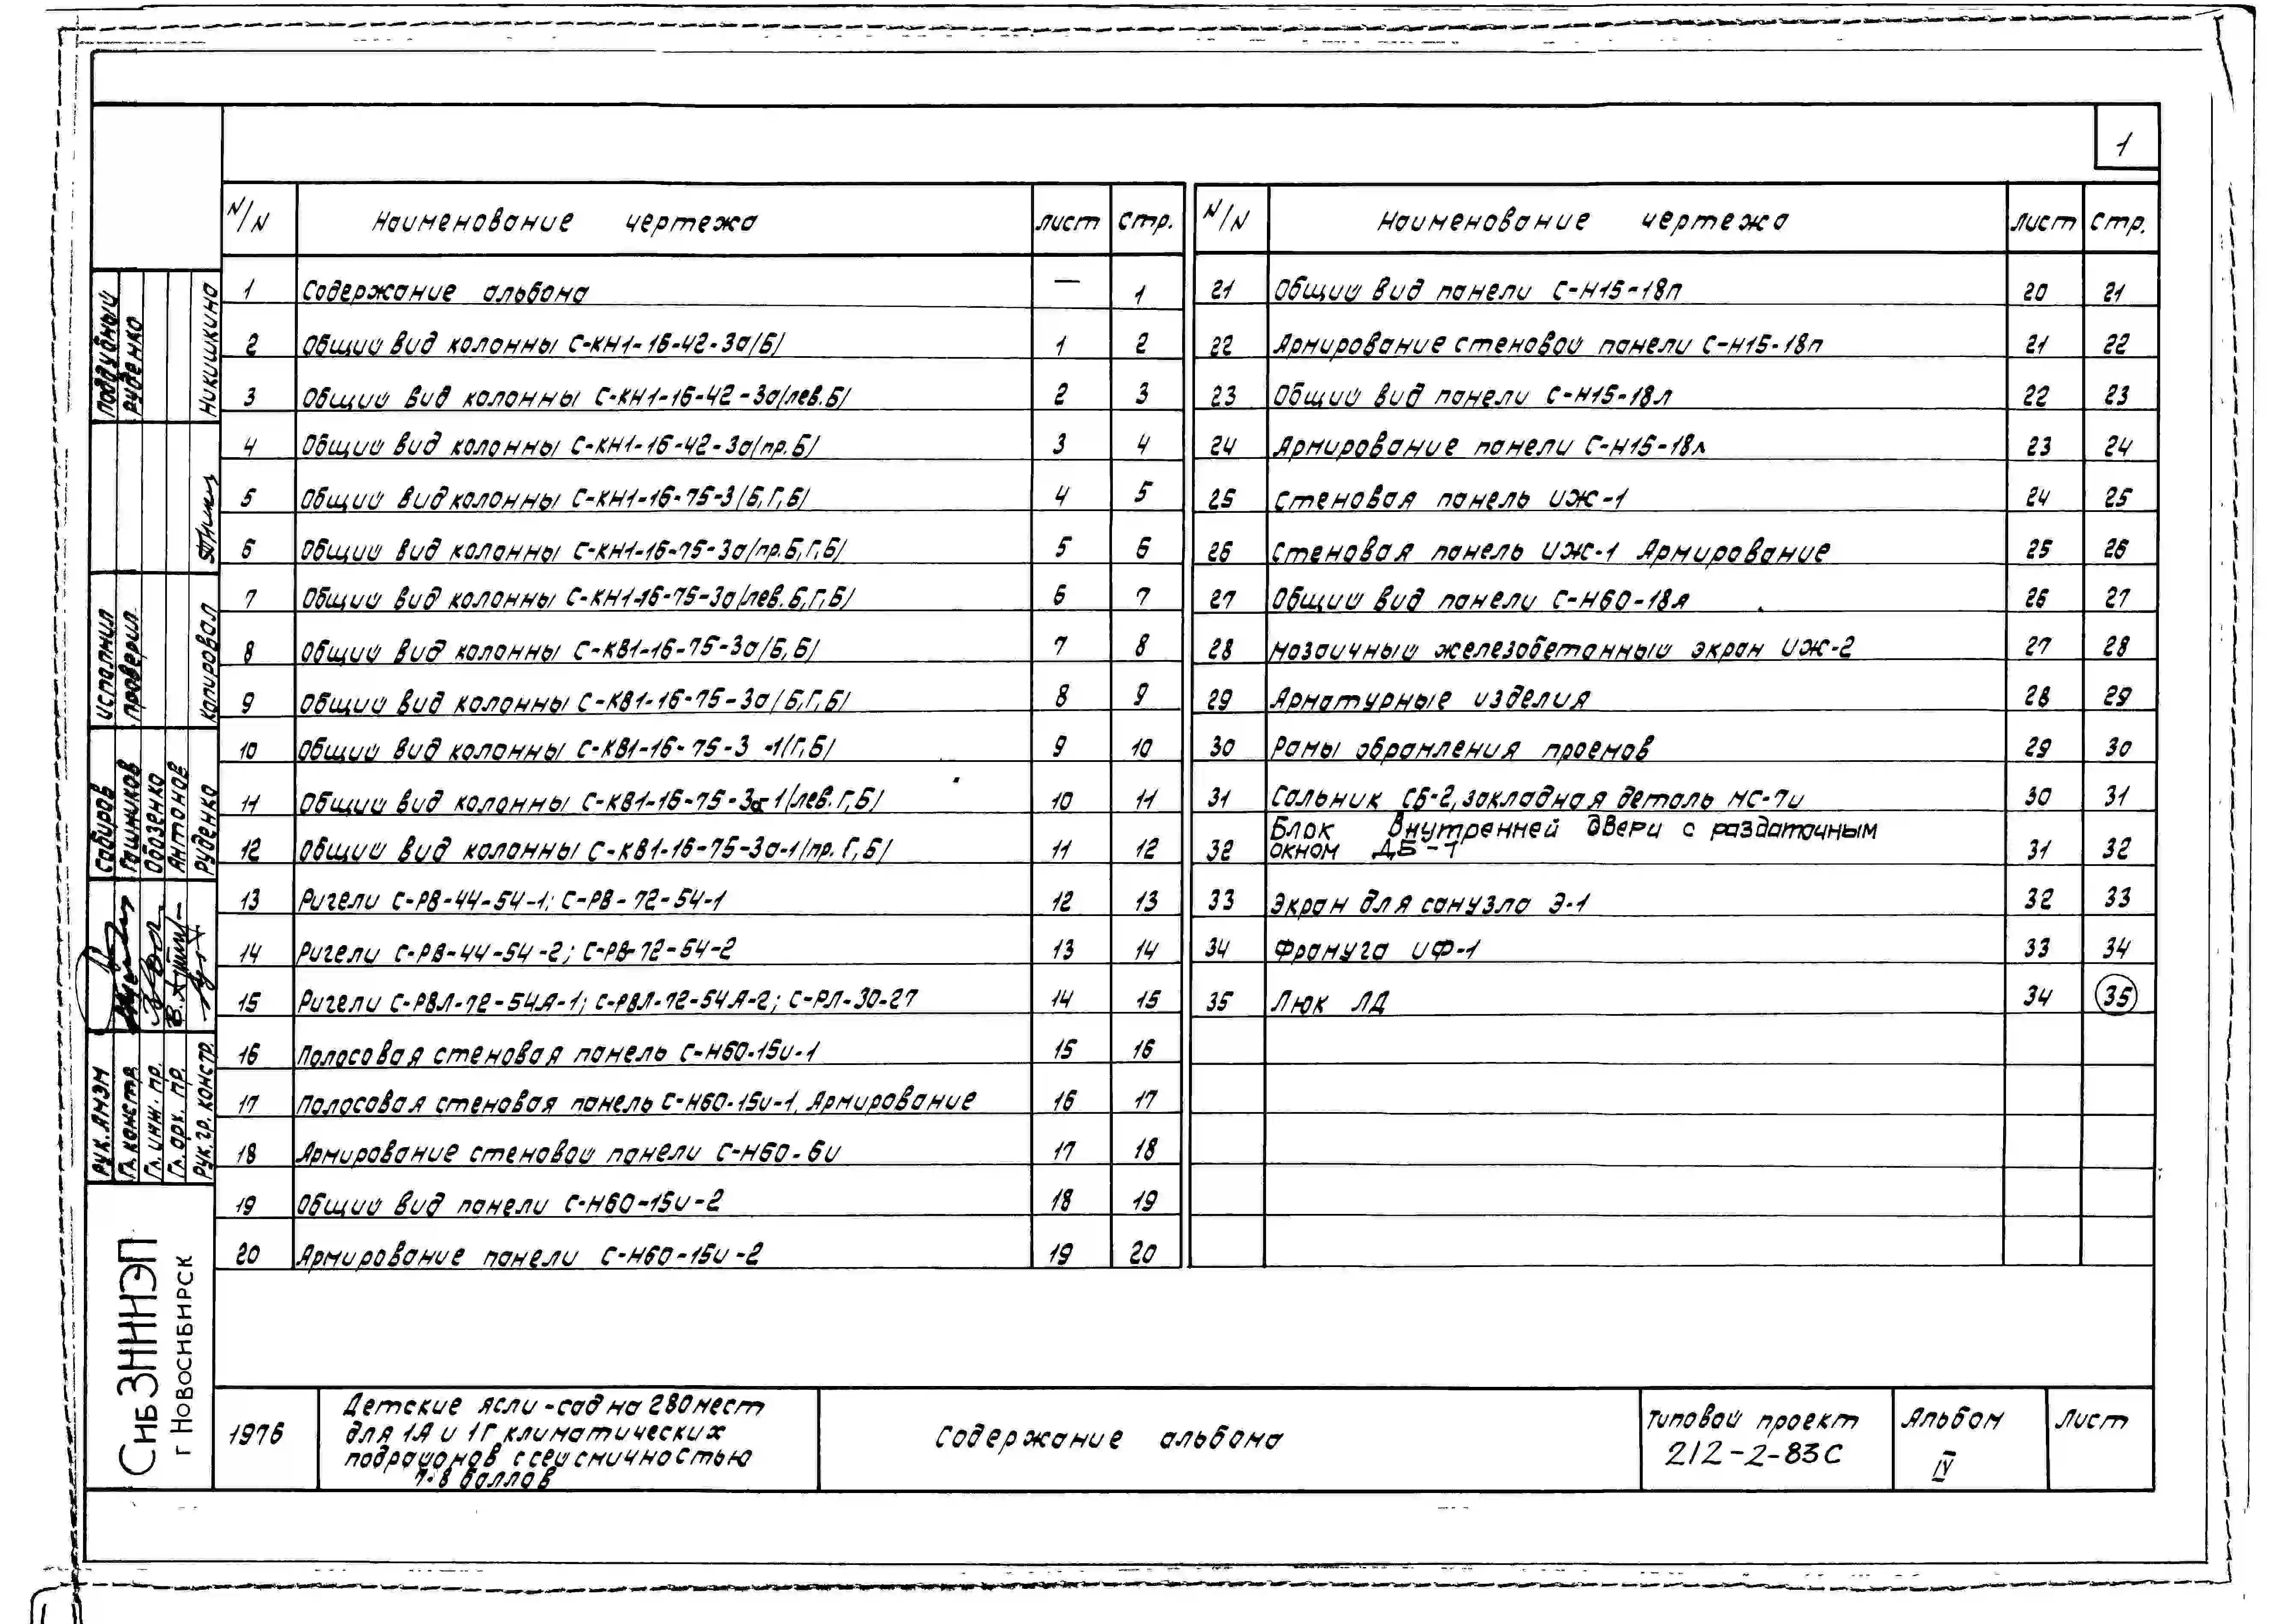 1
N/N Наименование чертежа лист стр.
1 Содержание альбома — 1
2 Общий вид колонны С-КН1-16-42-3а/Б/ 1 2
3 Общий вид колонны С-КН1-16-42-3а/лев.Б/ 2 3
4 Общий вид колонны С-КН1-16-42-3а/пр.Б/ 3 4
5 Общий вид колонны С-КН1-16-75-3/Б,Г,Б/ 4 5
6 Общий вид колонны С-КН1-16-75-3а/пр.Б,Г,Б/ 5 6
7 Общий вид колонны С-КН1-16-75-3а/лев.Б,Г,Б/ 6 7
8 Общий вид колонны С-КВ1-16-75-3а/Б,Б/ 7 8
9 Общий вид колонны С-КВ1-16-75-3а/Б,Г,Б/ 8 9
10 Общий вид колонны С-КВ1-16-75-3-1/Г,Б/ 9 10
11 Общий вид колонны С-КВ1-16-75-3а-1/лев.Г,Б/ 10 11
12 Общий вид колонны С-КВ1-16-75-3а-1/пр.Г,Б/ 11 12
13 Ригели С-РВ-44-54-1; С-РВ-72-54-1 12 13
14 Ригели С-РВ-44-54-2; С-РВ-72-54-2 13 14
15 Ригели С-РВЛ-72-54Л-1; С-РВЛ-72-54Л-2; С-РЛ-30-27 14 15
16 Полосовая стеновая панель С-Н60-15и-1 15 16
17 Полосовая стеновая панель С-Н60-15и-1. Армирование 16 17
18 Армирование стеновой панели С-Н60-6и 17 18
19 Общий вид панели С-Н60-15и-2 18 19
20 Армирование панели С-Н60-15и-2 19 20
N/N Наименование чертежа лист стр.
21 Общий вид панели С-Н15-18п 20 21
22 Армирование стеновой панели С-Н15-18п 21 22
23 Общий вид панели С-Н15-18л 22 23
24 Армирование панели С-Н15-18л 23 24
25 Стеновая панель ИЖ-1 24 25
26 Стеновая панель ИЖ-1 Армирование 25 26
27 Общий вид панели С-Н60-18я 26 27
28 Мозаичный железобетонный экран ИЖ-2 27 28
29 Арматурные изделия 28 29
30 Рамы обрамления проемов 29 30
31 Сальник СБ-2, закладная деталь МС-7и 30 31
32 Блок внутренней двери с раздаточным
окном ДБ-1 31 32
33 Экран для санузла Э-1 32 33
34 Фрамуга ИФ-1 33 34
35 Люк ЛД 34 35
Поддубный
Руденко
Никишкина
Исполнил
Проверил
Копировал
Сабиров
Гашников
Обозенко
Антонов
Руденко
Рук. АМЭМ
Гл. констр.
Гл. инж. пр.
Гл. арх. пр.
Рук. гр. констр.
СибЗНИИЭП
г Новосибирск
1976
Детские ясли-сад на 280 мест
для 1А и 1Г климатических
подрайонов с сейсмичностью
7-8 баллов
Содержание альбома
Типовой проект
212-2-83С
Альбом
IV
Лист